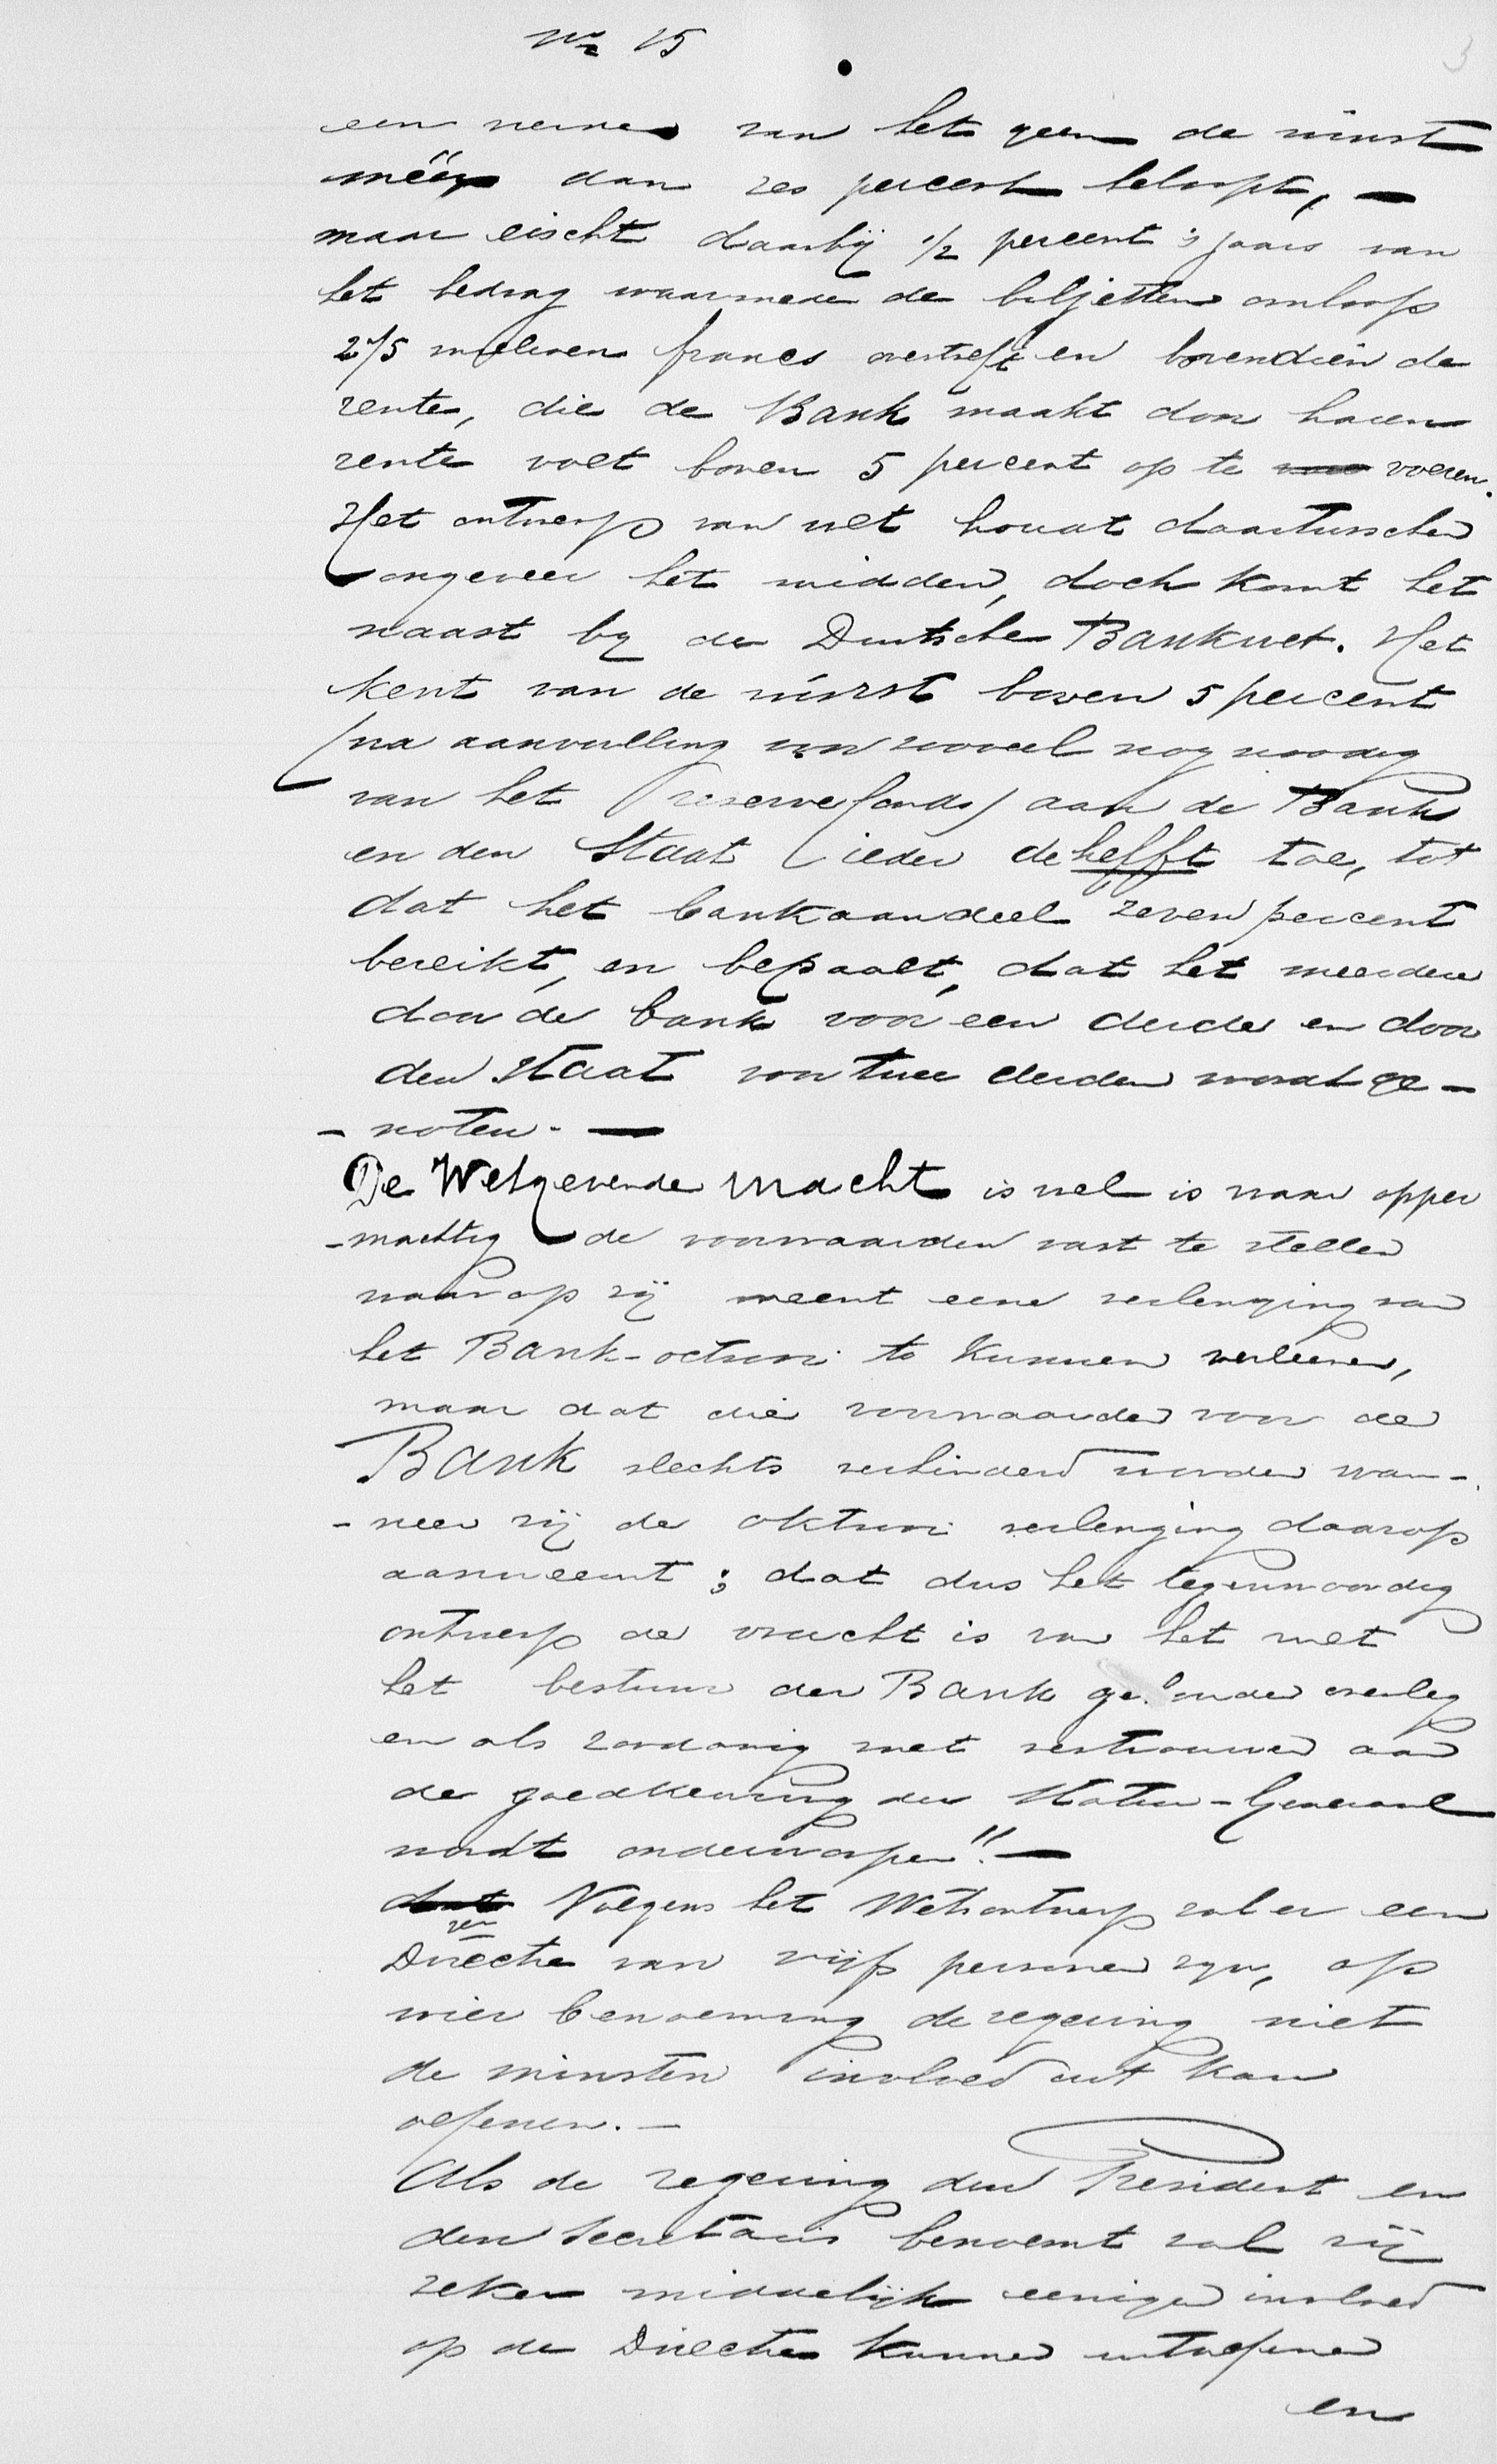 No 15
3
een vierde van het geen de winst
méér dan zes percent beloopt, —
maar eischt daarbij 1/2 percent 's jaars van
het bedrag waarmede de biljetten omloop
275 millioen francs overtreft en bovendien de
rente, die de Bank maakt door haren
rente voet boven 5 percent op te voeren.
Het ontwerp van wet houdt daartusschen
ongeveer het midden, doch komt het
naast by de Duitsche Bankwet. Het
kent van de winst boven 5 percent
(na aanvulling voor zooveel nog noodig
van het reservefonds) aan de Bank
en den Staat ieder de helfft toe, tot
dat het bankaandeel zeven percent
bereikt, en bepaalt, dat het meerdere
door de bank voor een derde en door
den Staat voor twee derden wordt ge-
- noten. —
De Wetgevende macht is wel is waar opper
- machtig de voorwaarden vast te stellen
waarop zij meent eene verlenging van
het Bank-octrooi te kunnen verleenen,
maar dat die voorwaarden voor de
Bank slechts verbindend worden wan-
- neer zij de oktrooi verlenging daarop
aanneemt; dat dus het tegenwoordig
ontwerp de vrucht is van het met
het bestuur der Bank gehouden overleg
en als zoodanig met vertrouwen aan
de goedkeuring der Staten-Generaal
wordt onderworpen". —
dat Volgens het Wetsontwerp zal er een
Directie van vijf personen zyn, op
wier benoeming de regering niet
de minsten invloed uit kan
oefenen. —
Als de regering den President en
den Secretaris benoemt zal zij
zeker middelijk eenigen invloed
op de Directie kunnen uitoefenen
en